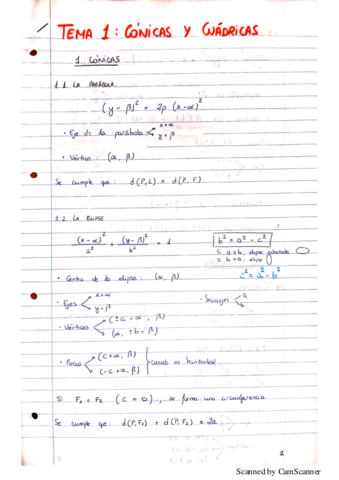 TEMA 1: CÓNICAS Y CUÁDRICAS
1. CÓNICAS
1.1. LA PARÁBOLA
(y - β)² = 2p (x - α)²
· Eje de la parábola < x = α
y = β
· Vértice: (α, β)
Se cumple que: d(P,L) = d(P,F)
1.2. LA ELIPSE
(x - α)² / a² + (y - β)² / b² = 1
b² = a² - c²
Si a > b, elipse
Si b > a, elipse
c² = a² - b²
· Centro de la elipse: (α, β)
· Ejes < x = α
y = β
· Semiejes < a
b
· Vértices < (± a + α, β)
(α, ± b + β)
· Focos < (c + α, β)
(-c + α, β)
cuando es horizontal
Si F₁ = F₂ (c = 0), se forma una circunferencia
Se cumple que: d(P,F₁) + d(P,F₂) = 2a
1
Scanned by CamScanner